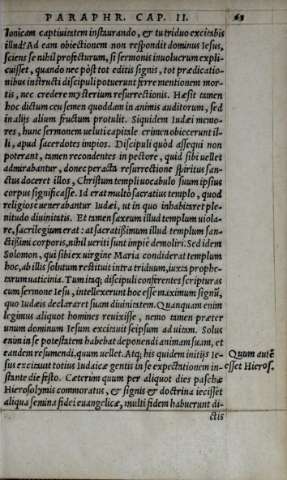 PARAPHR. CAP. II. 63
lonicam captiuitatem instaurando, & tu triduo excitabis
illud? Ad eam obiectionem non respondit dominus Iesus,
sciens se nihil profecturum, si sermonis inuolucrum expli-
cuisset, quando nec post tot editis signis, tot prædicatio-
nibus instructi discipuli potuerunt ferre mentionem mor-
tis, nec credere mysterium resurrectionis. Hæsit tamen
hoc dictum ceu semen quoddam in animis auditorum, sed
in alijs alium fructum protulit. Siquidem Iudæi memo-
res, hunc sermonem ueluti capitale crimen obiecerunt il-
li, apud sacerdotes impios. Discipuli quod assequi non
poterant, tamen recondentes in pectore, quid sibi uellet
admirabantur, donec peracta resurrectione spiritus san-
ctus doceret illos, Christum templi uocabulo suum ipsius
corpus significasse. Id erat multo sacratius templo, quod
religiose uenerabantur Iudæi, ut in quo inhabitaret ple-
nitudo diuinitatis. Et tamen saxeum illud templum uiola-
re, sacrilegium erat: at sacratissimum illud templum san-
ctissimi corporis, nihil ueriti sunt impie demoliri. Sed idem
Solomon, qui sibi ex uirgine Maria condiderat templum
hoc, ab illis solutum restituit intra triduum, iuxta prophe-
tarum uaticinia. Tum itaq; discipuli conferentes scripturas
cum sermone Iesu, intellexerunt hoc esse maximum signū,
quo Iudæis declararet suam diuinitatem. Quanquam enim
legimus aliquot homines reuixisse, nemo tamen præter
unum dominum Iesum excitauit seipsum ad uitam. Solus
enim in se potestatem habebat deponendi animam suam, et
eandem resumendi, quum uellet. Atq; his quidem initijs Ie-
sus excitauit totius Iudaicæ gentis in se expectationem in-
stante die festo. Cæterum quum per aliquot dies paschæ
Hierosolymis commoratus, & signis & doctrina iecisset
aliqua semina fidei euangelicæ, multi fidem habuerunt di-
ctis
Quum autē
esset Hieros.